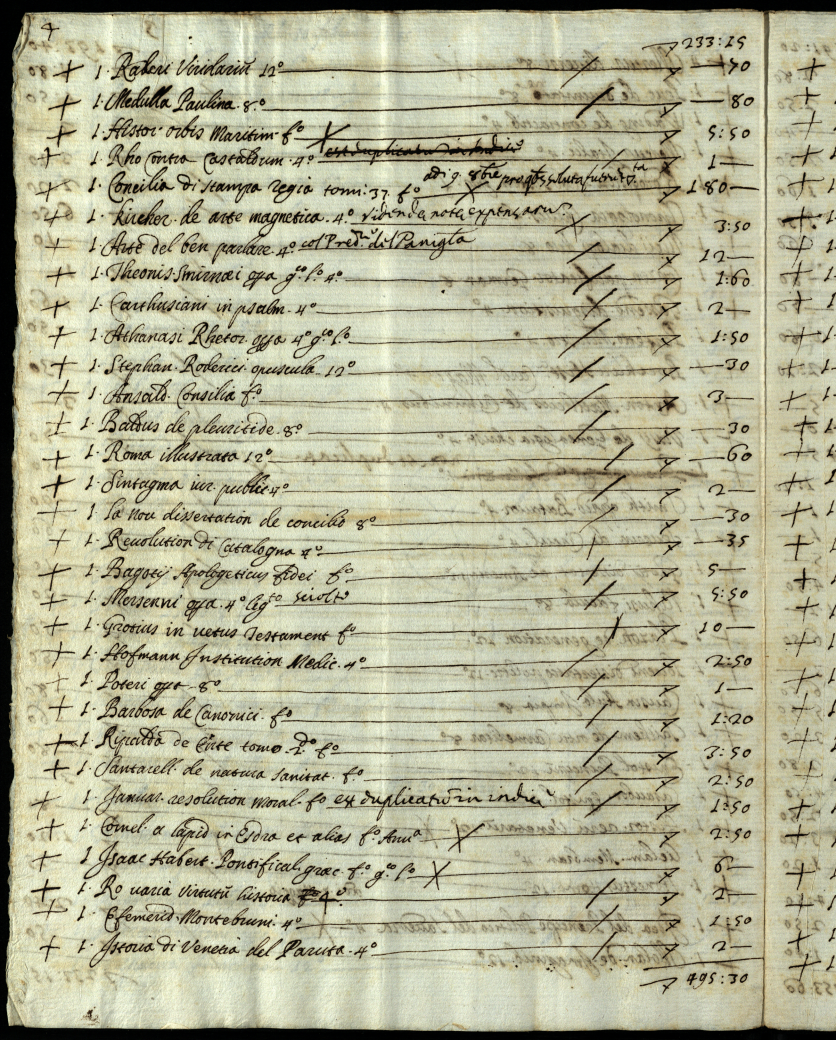 4
233:15
+ 1. Raberi Viridariū 12º 70
+ 1. Medulla Paulina. 8º 80
+ 1. Histor. orbis Maritim. fº 5:50
+ 1. Rho Contra Castaldum. 4º est duplicatū in Indice 1—
+ 1. Concilia di stampa regia tomi: 37. fº adi 9. 8bre 180—
+ 1. Kircher. de arte magnetica. 4º Vidende nota 3:50
+ 1. Arte del ben parlare 4º col del Panigla 12—
+ 1. Theonis Smirnæi opa gºº lº 4º 1:60
+ 1. Carthusiani in psalm. 4º 2—
+ 1. Athanasi Rhetor. opa 4º gºº lº 1:50
+ 1. Stephan. Roderici opuscula 12º —30
+ 1. Ansald. Consilia fº 3—
+ 1. Baldus de pleuritide. 8º —30
+ 1. Roma illustrata 12º —60
+ 1. Sintagma iur. public. 4º 2—
+ 1. la nou dissertation de concilio 8º —30
+ 1. Reuolution di Catalogna 4º —35
+ 1. Bagotij Apologeticus fidei fº 5—
+ 1. Mersenni opa. 4º legto sciolto 5:50
+ 1. Grotius in uetus Testament fº 10—
+ 1. Hofmann Institution Medic. 4º 2:50
+ 1. Poteri opa. 8º 1—
+ 1. Barbosa de Canonici. fº 1:20
+ 1. Ripalda de Ente tomo fº 3:50
+ 1. Santarell. de natura sanitat. fº 2:50
+ 1. Januar. resolution moral. fº est duplicatū in indice 1:50
+ 1. Cornel. a lapid in Esdra et alias fº Anuª 2:50
+ 1. Isaac Habert. Pontifical græc. fº gºº lº 6—
+ 1. Ro varia virtutū historia 4º 2—
+ 1. Efemerid. Montebruni. 4º 1:50
+ 1. Istoria di Venetia del Paruta. 4º 2—
495:30